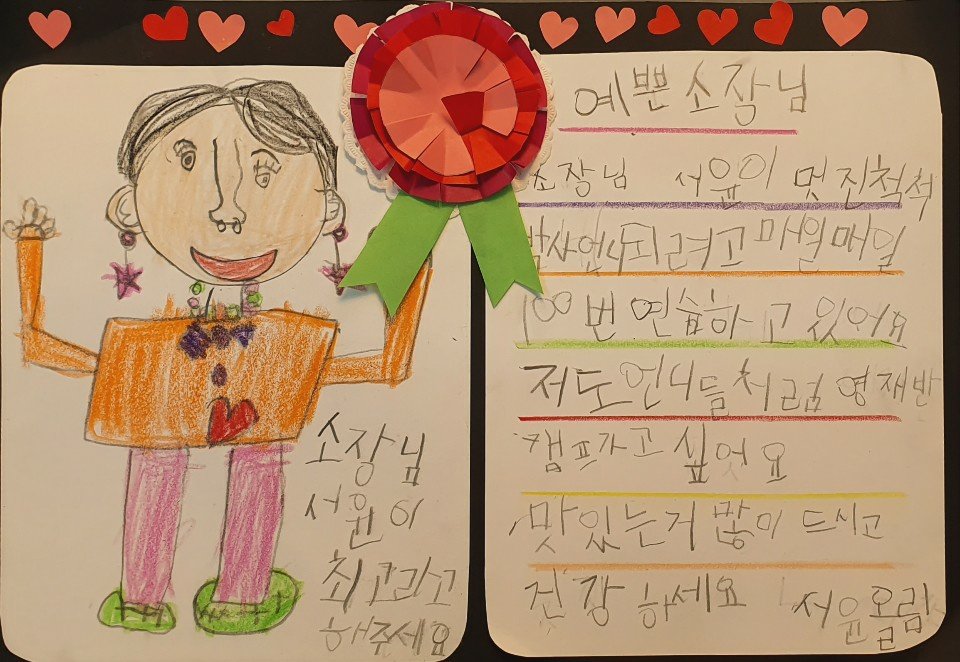 소장님
서윤이
최고라고
해주세요
예쁜 소장님
소장님 서윤이 멋진척척
박사언니되려고 매일매일
100번 연습하고 있어요
저도언니들처럼 영재반
캠프가고 싶어요
맛있는거 많이 드시고
건강하세요 서윤올림